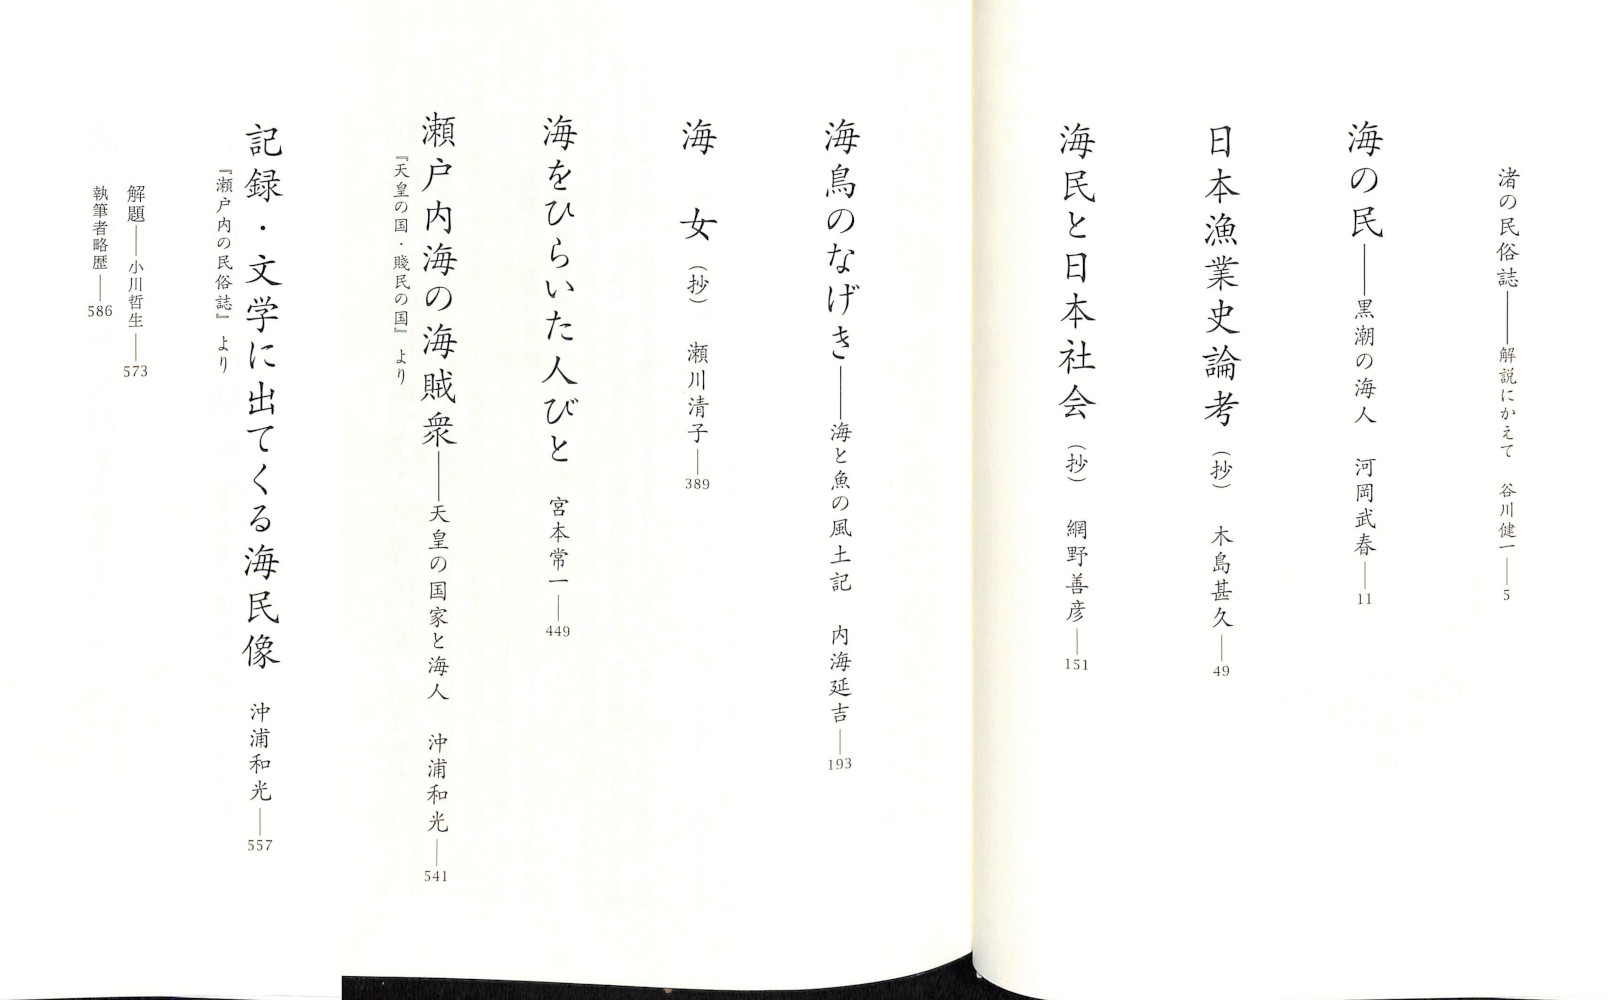 渚の民俗誌――解説にかえて 谷川健一――5
海の民――黒潮の海人 河岡武春――11
日本漁業史論考（抄） 木島甚久――49
海民と日本社会（抄） 網野善彦――151
海鳥のなげき――海と魚の風土記 内海延吉――193
海 女（抄） 瀬川清子――389
海をひらいた人びと 宮本常一――449
瀬戸内海の海賊衆――天皇の国家と海人 沖浦和光――541
『天皇の国・賤民の国』より
記録・文学に出てくる海民像 沖浦和光――557
『瀬戸内の民俗誌』より
解題――小川哲生――573
執筆者略歴――586